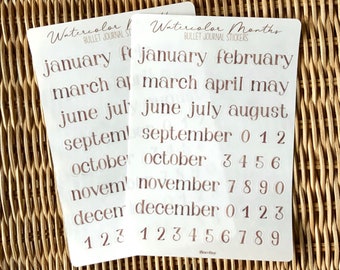 Watercolor Months
BULLET JOURNAL STICKERS
january february
march april may
june july august
september 0 1 2
october 3 4 5 6
november 7 8 9 0
december 0 1 2 3
1 2 3 4 5 6 7 8 9
Watercolor Months
BULLET JOURNAL STICKERS
january
march ap
june july
septembe
october
novembe
decembe
1 2 3